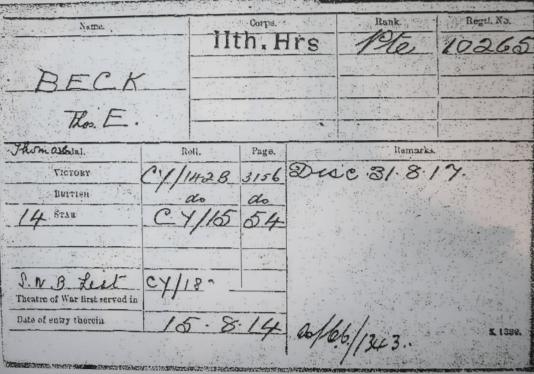 Name. Corps. Rank. Regtl. No.
11th. Hrs Pte 10265
BECK
Thos. E.
Roll. Page. Remarks.
VICTORY CY/142B 3156 Disc 31.8.17.
BRITISH do do
14 STAR CY/15 54
S.W.B. List CY/18
Theatre of War first served in
Date of entry therein 15.8.14
/1343.
K 1380.